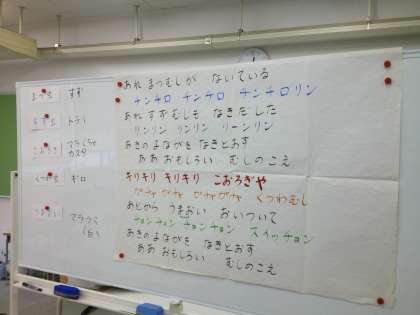 まつ虫 すず
すず虫 トライ
こおろぎ マラカス
カスタ
くつわ虫 ギロ
うまおい マラカス
(白)
あれ まつむしが ないている
チンチロ チンチロ チンチロリン
あれ すずむしも なきだした
リンリン リンリン リーンリン
あきのよながを なきとおす
ああ おもしろい むしのこえ
キリキリ キリキリ こおろぎや
ガチャガチャ ガチャガチャ くつわむし
あとから うまおい おいついて
チョンチョン チョンチョン スイッチョン
あきのよながを なきとおす
ああ おもしろい むしのこえ